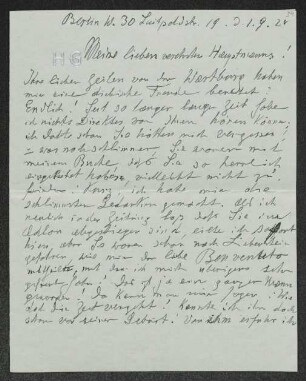 Berlin W. 30 Luitpoldstr. 19. d. 1. 9. 24
Meine lieben verehrten Hauptmanns!
Ihre lieben Zeilen von der Wartburg haben
mir eine Freude bereitet!
Endlich! Seit so langer langer Zeit habe
ich nichts Direktes von Ihnen hören können,
ich dachte schon Sie hätten mich vergessen!
was noch schlimmer, Sie waren mit
meinem Buche, das Sie so herrlich
haben, vielleicht nicht zu-
frieden! Kurz, ich habe mir die
schlimmsten Gedanken gemacht. Als ich
neulich in der Zeitung las, daß Sie im
Adlon abgestiegen sind, eilte ich sofort
hin, aber Sie waren schon nach
gefahren, wie mir der liebe Benvenuto
mitteilte, mit dem ich mich übrigens sehr
gefreut habe! Das ist ja ein ganzer Mann
geworden! Da kann man mal sagen: Wie
doch die Zeit vergeht! Kannte ich ihn doch
schon vor seiner Geburt! Von ihm erfuhr ich